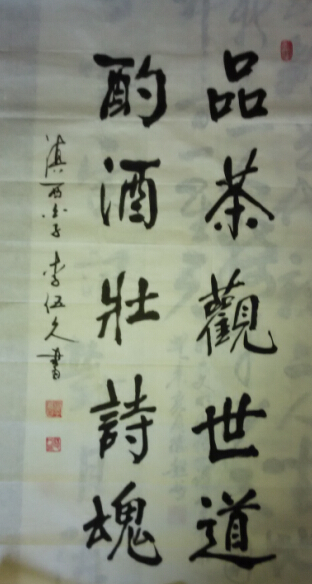 品茶觀世道
酌酒壯詩魂
李伍久書